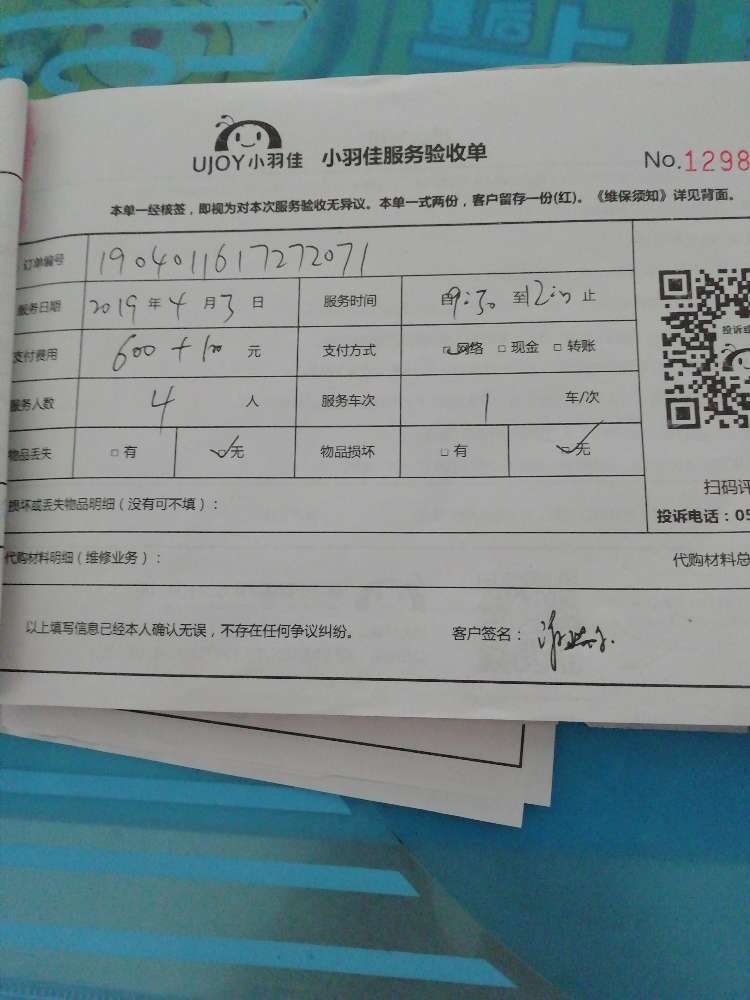 UJOY小羽佳 小羽佳服务验收单 No.1298
本单一经核签，即视为对本次服务验收无异议。本单一式两份，客户留存一份(红)。《维保须知》详见背面。
订单编号 1904011617272071
服务日期 2019 年 4 月 3 日 服务时间 自 9:30 至 12:00 止
支付费用 600+100 元 支付方式 ☑网络 □现金 □转账
服务人数 4 人 服务车次 1 车/次
物品丢失 □有 ☑无 物品损坏 □有 ☑无
投诉或
扫码评
损坏或丢失物品明细（没有可不填）：
投诉电话：05
代购材料明细（维修业务）： 代购材料总
以上填写信息已经本人确认无误，不存在任何争议纠纷。 客户签名：